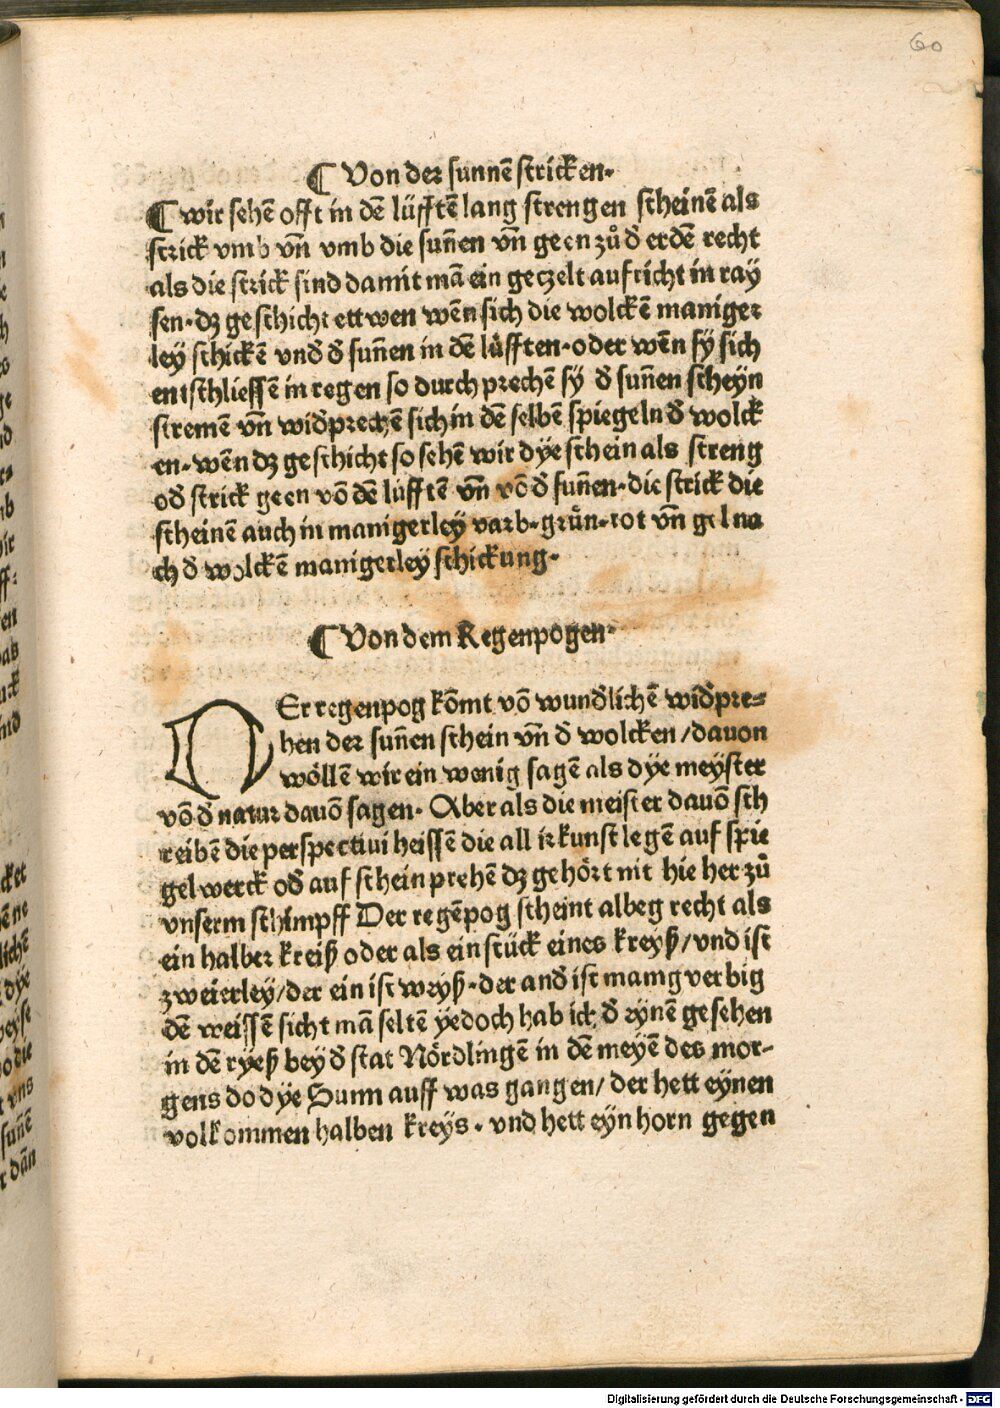 60
¶ Von der sunnē stricken.
¶ wir sehē offt in dē lüfftē lang strengen scheinē als
strick vmb vñ vmb die suñen vñ geen zů đ erdē recht
als die strick sind damit mā ein geczelt aufricht in ray
sen. dz geschicht ettwen wēn sich die wolckē maniger
ley schickē vnđ đ suñen in dē lüfften. oder wēn sy sich
entschliessē in regen so durch prechē sy đ suñen scheyn
stremē vñ wiđprechē sich in dē selbē spiegeln đ wolck
en. wēn dz geschicht so sehē wir dye schein als streng
ođ strick geen vō dē lüfftē vñ vō đ suñen. die strick die
scheinē auch in manigerley varb. grün. rot vñ gel na
ch đ wolckē manigerley schickung.
¶ Von dem Regenpogen.
DEr regenpog kōmt vō wunđlichē wiđpre=
hen der suñen schein vñ đ wolcken / dauon
wöllē wir ein wenig sagē als dye meyster
vō đ natur dauō sagen. Aber als die meister dauō sch
reibē die perspectiui heissē die all ir kunst legē auf spie
gel werck ođ auf schein prehē dz gehört nit hie her zů
vnserm schimpff Der regēpog scheint albeg recht als
ein halber kreiß oder als ein stück eines kreyß / vnd ist
zweierley / der ein ist weyß. der anđ ist manig verbig
dē weissē sicht mā seltē yedoch hab ich đ eynē gesehen
in dē ryeß bey đ stat Nördlingē in dē meyē des mor=
gens do dye Sunn auff was gangen / der hett eynen
volkommen halben kreys. vnd hett eyn horn gegen
Digitalisierung gefördert durch die Deutsche Forschungsgemeinschaft - DFG